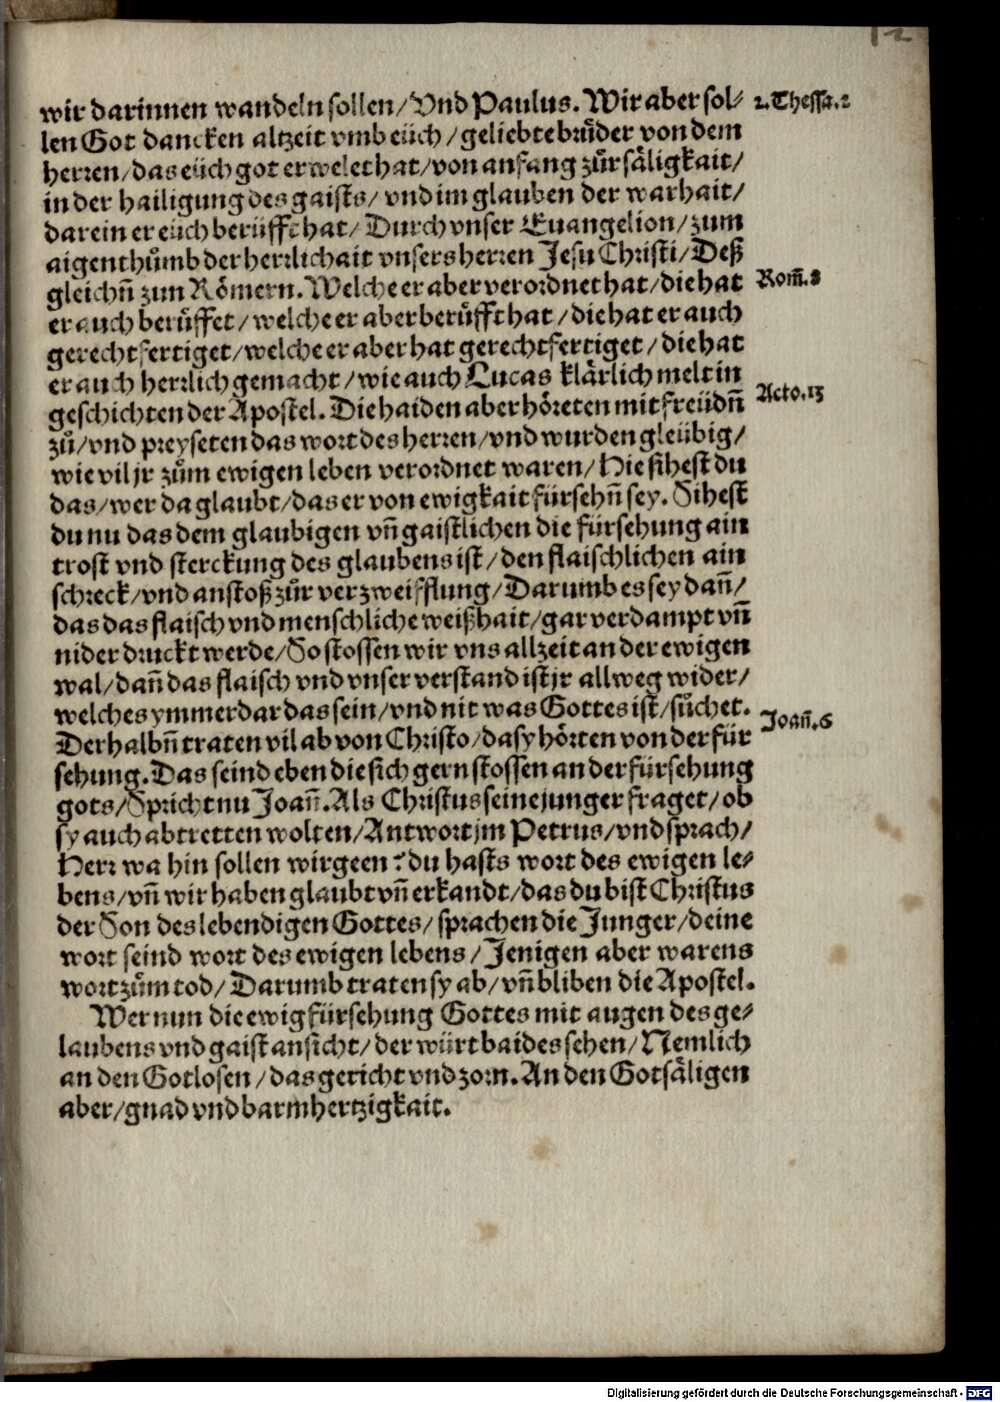 12
wir darinnen wandeln sollen/ Vnd Paulus. Wir aber sol⸗ 2. Thessa. 2
len Got dancken altzeit vmb eüch/ geliebte bruͤder von dem
herren/ das eüch got erwelet hat/ von anfang zuͦr säligkait/
in der hailigung des gaists/ vnd im glauben der warhait/
darein er eüch berüfft hat/ Durch vnser Euangelion/ zum
aigenthuͦmb der herrlichait vnsers herren Jesu Christi/ Deß
gleichn̄ zun Römern. Welche er aber verordnet hat/ die hat Rom̄. 8
er auch beruͤffet/ welche er aber beruͤfft hat/ die hat er auch
gerechtfertiget/ welche er aber hat gerechtfertiget/ die hat
er auch herrlich gemacht/ wie auch Lucas klärlich melt in
geschichten der Apostel. Die haiden aber höreten mit freüdn̄ Acto. 13
zuͦ/ vnd preyseten das wort des herren/ vnd wurden gleübig/
wie vil jr zuͦm ewigen leben verordnet waren/ Hie sihest du
das/ wer da glaubt/ das er von ewigkait fürsehn̄ sey. Sihest
du nu das dem glaubigen vn̄ gaistlichen die fürsehung ain
trost vnd sterckung des glaubens ist/ den flaischlichen ain
schreck/ vnd anstoß zuͦr verzweifflung/ Darumb es sey dan̄/
das das flaisch vnd menschliche weißhait/ gar verdampt vn̄
nider druckt werde/ So stossen wir vns allzeit an der ewigen
wal/ dan̄ das flaisch vnd vnser verstand ist jr allweg wider/
welches ymmerdar das sein/ vnd nit was Gottes ist/ suͦchet.
Derhalbn̄ traten vil ab von Christo/ da sy hörten von der für Joan̄. 6
sehung. Das seind eben die sich gern stossen an der fürsehung
gots/ Spricht nu Joan̄. Als Christus seine junger fraget/ ob
sy auch abtretten wolten/ Antwort jm Petrus/ vnd sprach/
Herr wa hin sollen wir geen? du hasts wort des ewigen le⸗
bens/ vn̄ wir haben glaubt vn̄ erkandt/ das du bist Christus
der Son des lebendigen Gottes/ sprachen die Junger/ deine
wort seind wort des ewigen lebens/ Jenigen aber warens
wort zuͦm tod/ Darumb traten sy ab/ vn̄ bliben die Apostel.
Wer nun die ewig fürsehung Gottes mit augen des ge⸗
laubens vnd gaist ansicht/ der würt baides sehen/ Nemlich
an den Gotlosen/ das gericht vnd zorn. An den Gotsäligen
aber/ gnad vnd barmhertzigkait.
Digitalisierung gefördert durch die Deutsche Forschungsgemeinschaft - DFG